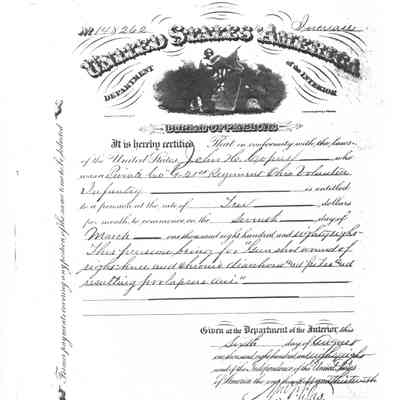 No 148262 Increase
UNITED STATES OF AMERICA
DEPARTMENT of the INTERIOR
BUREAU OF PENSIONS
It is hereby certified That in conformity with the laws
of the United States John H. who
was a Private Co G 21st Regiment Ohio Volunteer
Infantry is entitled
to a pension at the rate of Ten dollars
per month, to commence on the Seventh day of
March one thousand eight hundred and eighty eight
This pension being for "Gun shot wound of
right knee and chronic diarrhoea and piles and
resulting prolapsus ani."
Given at the Department of the Interior this
Sixth day of August
one thousand eight hundred and eighty eight
and of the Independence of the United States
of America the one hundred and thirteenth